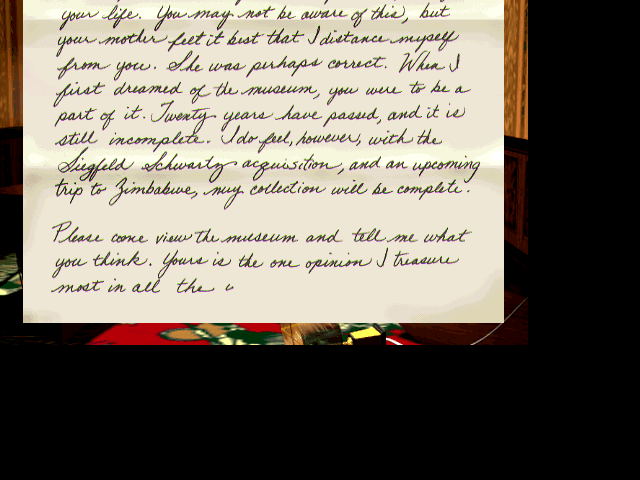 your life. You may not be aware of this, but
your mother felt it best that I distance myself
from you. She was perhaps correct. When I
first dreamed of the museum, you were to be a
part of it. Twenty years have passed, and it is
still incomplete. I do feel, however, with the
Siegfeld Schwartz acquisition, and an upcoming
trip to Zimbabwe, my collection will be complete.
Please come view the museum and tell me what
you think. Yours is the one opinion I treasure
most in all the